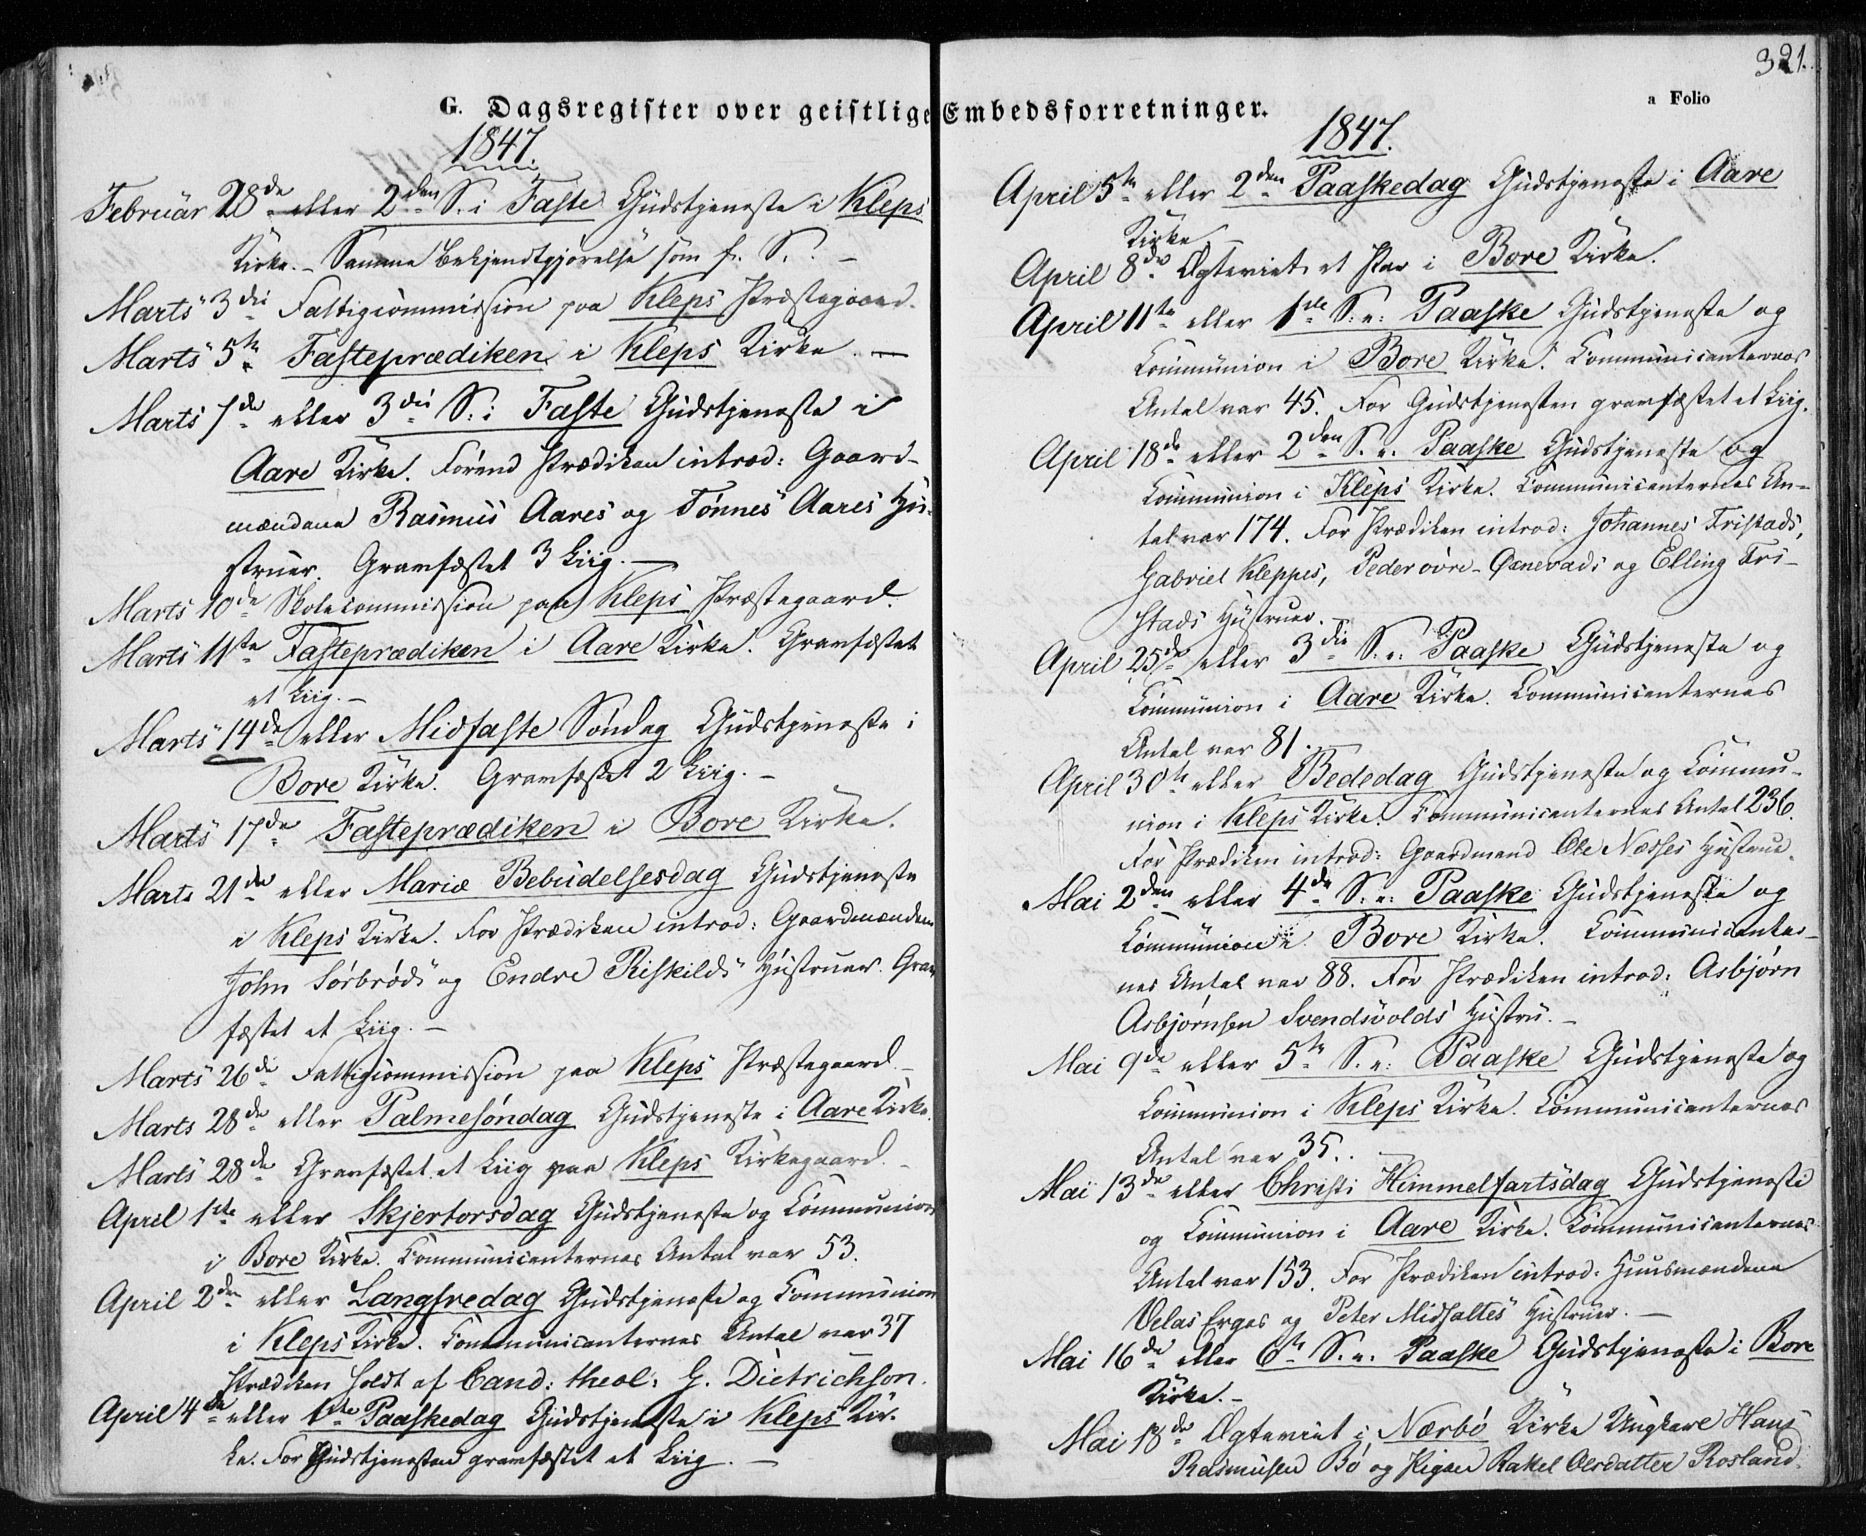 321.
a Folio
G. Dagsregister over geistlige Embedsforretninger.
1847.
Februar 28de eller 2den S. i Faste Gudstjeneste i Kleps
Kirke. – Samme Bekjendtgjørelse som f. S. –
Marts 3die Fattigcommission paa Kleps Præstegaard.
Marts 5te Fasteprædiken i Kleps Kirke. –
Marts 7de eller 3die S. i Faste Gudstjeneste i
Aare Kirke. Forend Prædiken introd: Gaard-
mændene Rasmus Aares og Tønnes Aares Hu-
struer. Gravfæstet 3 Liig. –
Marts 10de Skolecommission paa Kleps Præstegaard.
Marts 11te Fasteprædiken i Aare Kirke. Gravfæstet
et Liig. –
Marts 14de eller Midfaste Søndag Gudstjeneste i
Bore Kirke. Gravfæstet 2 Liig. –
Marts 17de Fasteprædiken i Bore Kirke.
Marts 21de eller Mariæ Bebudelsesdag Gudstjeneste
i Kleps Kirke. For Prædiken introd: Gaardmændene
John Sørbrøds og Endre Riskilds Hustruer. Grav-
fæstet et Liig. –
Marts 26de Fattigcommission paa Kleps Præstegaard. –
Marts 28de eller Palmesøndag Gudstjeneste i Aare Kirke.
Marts 28de Gravfæstet et Liig paa Kleps Kirkegaard. –
April 1ste eller Skjertorsdag Gudstjeneste og Communion
i Bore Kirke. Communicanternes Antal var 53.
April 2den eller Langfredag Gudstjeneste og Communion
i Kleps Kirke. Communicanternes Antal var 37
Prædiken holdt af Cand: theol: G. Dietrichson.
April 4de eller 1ste Paaskedag Gudstjeneste i Kleps Kir-
ke. For Gudstjenesten gravfæstet et Liig. –
1847.
April 5te eller 2den Paaskedag Gudstjeneste i Aare
Kirke. –
April 8de Ægteviet et Par i Bore Kirke.
April 11te eller 1ste S. e. Paaske Gudstjeneste og
Communion i Bore Kirke. Communicanternes
Antal var 45. For Gudstjenesten gravfæstet et Liig.
April 18de eller 2den S. e. Paaske Gudstjeneste og
Communion i Kleps Kirke. Communicanternes An-
tal var 174. For Prædiken introd: Johannes Fristads,
Gabriel Kleppes, Peder øvre-Øxnevads og Elling Fri-
stads Hustruer.
April 25de eller 3die S. e. Paaske Gudstjeneste og
Communion i Aare Kirke. Communicanternes
Antal var 81. –
April 30te eller Bededag Gudstjeneste og Commu-
nion i Kleps Kirke. Communicanternes Antal 236.
For Prædiken introd: Gaardmand Ole Næsses Hustrue.
Mai 2den eller 4de S. e. Paaske Gudstjeneste og
Communion i Bore Kirke. Communicanter-
nes Antal var 88. For Prædiken introd: Asbjørn
Asbjørnsen Svendsvolds Hustru. –
Mai 9de eller 5te S. e. Paaske Gudstjeneste og
Communion i Kleps Kirke. Communicanternes
Antal var 35. –
Mai 13de eller Christi Himmelfartsdag Gudstjeneste
og Communion i Aare Kirke. Communicanternes
Antal var 153. For Prædiken introd: Huusmændene
Velas Erges og Peter Hustruer. –
Mai 16de eller 6te S. e. Paaske Gudstjeneste i Bore
Kirke. –
Mai 18de Ægteviet i Nærbø Kirke Ungkare Hans
Rasmusen Bø og Pigen Rakel Olsdatter Rosland.